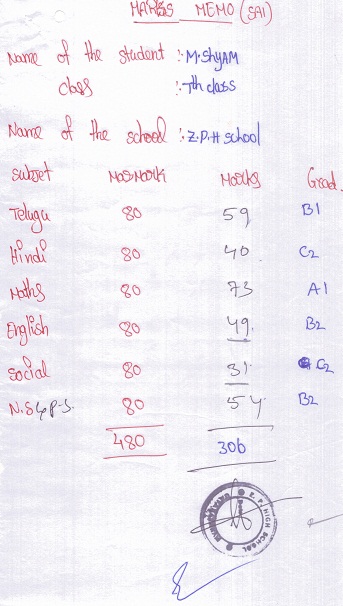 MARKS MEMO (SA1)
Name of the student :- M. Shyam
class :- 7th class
Name of the school :- Z.P.H school
Subjet Max.Mark Marks Grad.
Telugu 80 59 B1
Hindi 80 40 C2
Maths 80 73 A1
English 80 49 B2
Social 80 31 C2
N.S & P.S. 80 54 B2
480 306
Z. P. HIGH SCHOOL